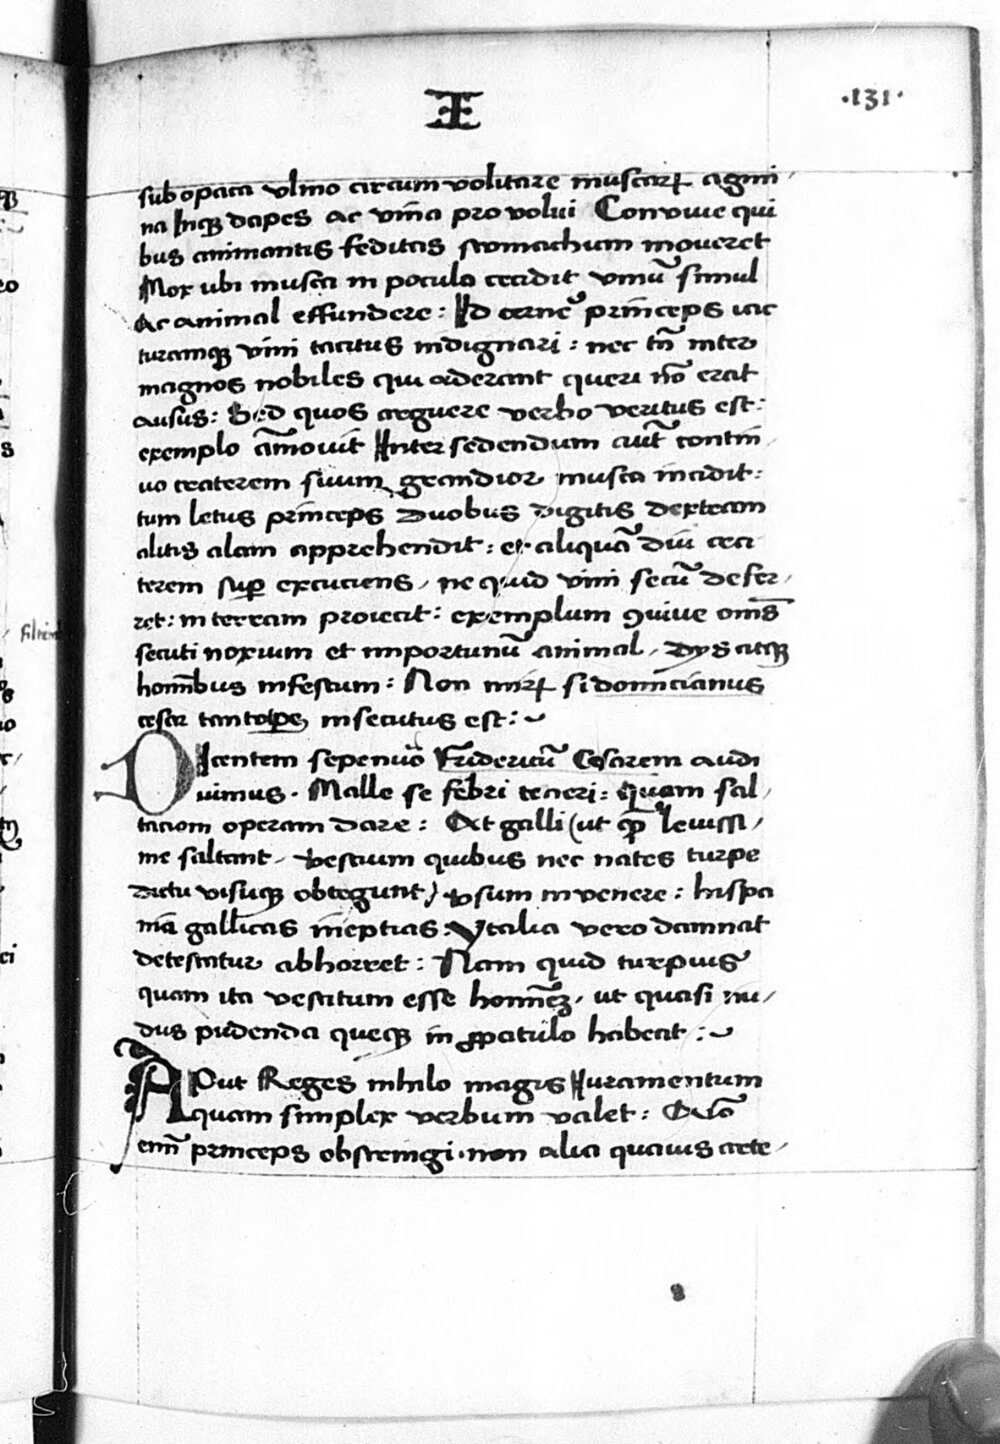 Æ
.131.
sub opaca vlmo circum volitare muscarꝝ agmi
na Inqꝫ dapes ac vina pro volui Conviue qui
bus animantis feditas stomachum moueret
Mox ubi musca in pocula cecidit vinū simul
Ac animal effundere : Id cernēs princeps iac
turamqꝫ vini tacitus indignari : nec tn̄ inter
magnos nobiles qui aderant queri nō erat
ausus : Sed quos arguere verbo veritus est :
exemplo āmovit Inter sedendum aut̄ contin
uo craterem suum grandior musca incidit :
tum letus princeps duobus digitis dexteram
alitis alam apprehendit : et aliquā diu cra
terem suꝑ excuciens / ne quid vini secū defer /
ret : in terram proiecit : exemplum ꝯuiue oms̄
secuti noxium et importunū animal / Dysatqꝫ
homībus infestum : Non mirꝝ si domicianus
cesar tantoꝑe insecutus est :~
DIcentem sepenūo Fridericū Cesarem audi
uimus . Malle se febri teneri : quam sal /
tacioni operam dare : At galli (ut qꝫ leuissi /
me saltant / vestium quibus nec nates turpe
dictu visuqꝫ obtegunt) vsum invenere : hispa
nia gallicas ineptias : ytalia vero damnat
detestatur abhorret : Nam quid turpius
quam ita vestitum esse homīeꝫ / ut quasi nu /
dus pudenda queqꝫ in ꝓpatulo habeat :~
APut Reges nihilo magis Iuramentum
quam simplex verbum valet : Quō
enim̄ princeps obstringi . non alia quauis arte /